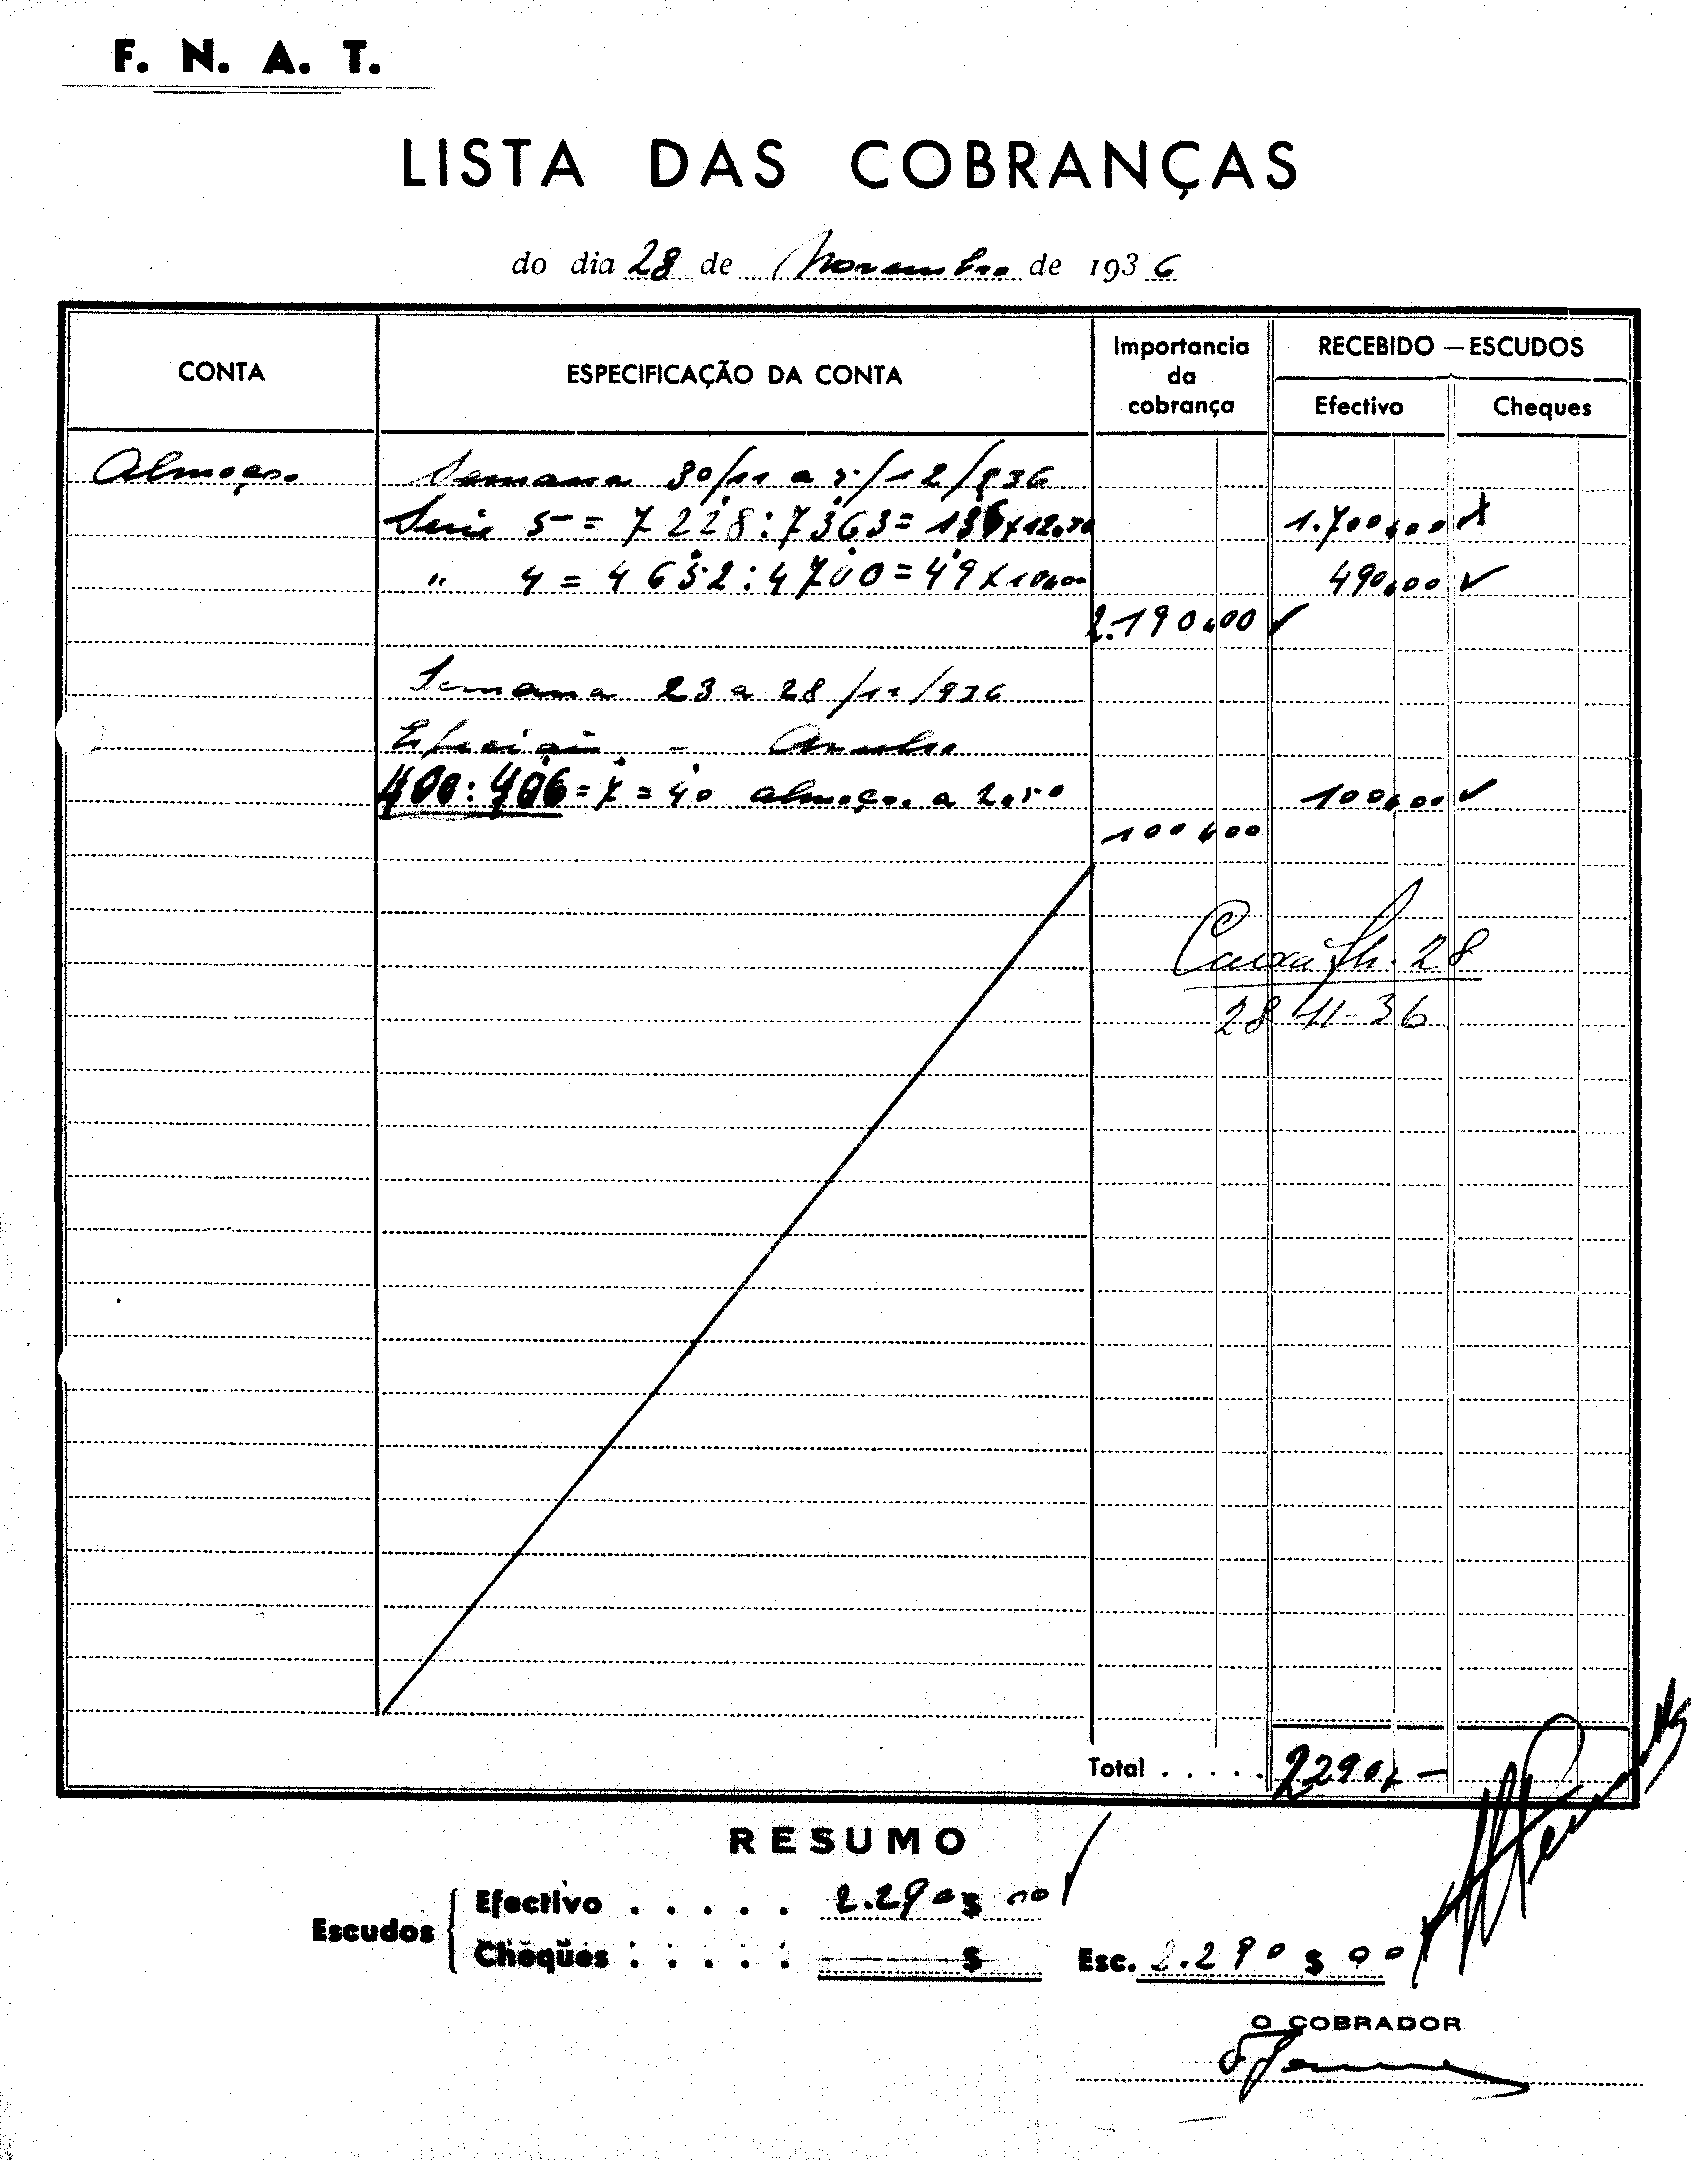 F. N. A. T.
LISTA DAS COBRANÇAS
do dia 28 de Novembro de 1936
CONTA
ESPECIFICAÇÃO DA CONTA
Importancia da cobrança
RECEBIDO — ESCUDOS
Efectivo
Cheques
Almoços Semana 30/11 a 5/12/936
Serie 5 = 7228:7363 = 136 x 12,50 1.700,00
" 4 = 4652:4700 = 49 x 10,00 490,00 ✓
2.190,00 ✓
Semana 23 a 28/11/936
400:406 = 7 = 40 almoços a 2,50 100,00 ✓
100,00
Caixa fh. 28
28-11-36
Total . . . . . 2290$ —
RESUMO
Escudos
Efectivo . . . . . 2.290$00 ✓
Cheques : . . . : —— $
Esc. 2.290$00
O COBRADOR